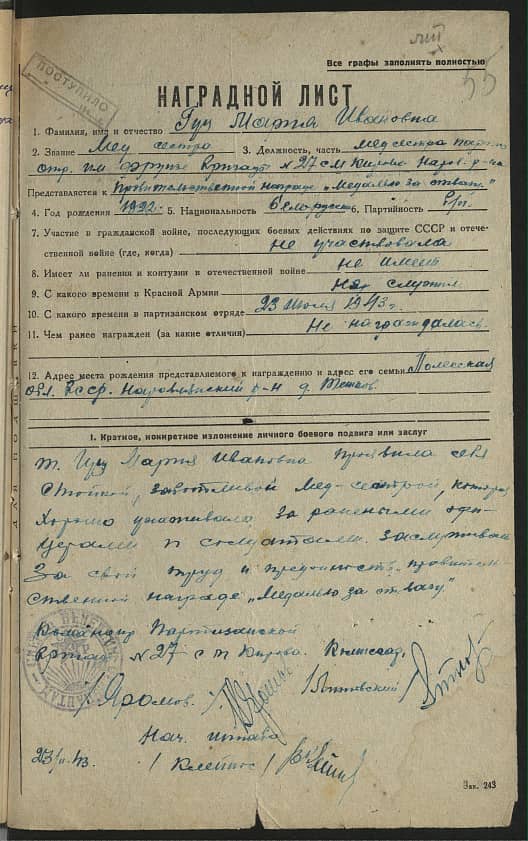 Все графы заполнять полностью
55
ПОСТУПИЛО
НАГРАДНОЙ ЛИСТ
1. Фамилия, имя и отчество Гуц Мария Ивановна
2. Звание Мед сестра 3. Должность, часть медсестра
отр. им Фрунзе Бригады N 27 с м Кирова Наров. р-на
Представляется к Правительственной награде „Медалью за отвагу"
4. Год рождения 1922 5. Национальность белоруска 6. Партийность б/п
7. Участие в гражданской войне, последующих боевых действиях по защите СССР и отече-
ственной войне (где, когда) не участвовала
8. Имеет ли ранения и контузии в отечественной войне не имеет
9. С какого времени в Красной Армии
10. С какого времени в партизанском отряде 23 Июля 1943 г.
11. Чем ранее награжден (за какие отличия) Не награждалась
12. Адрес места рождения представляемого к награждению и адрес его семьи Полесская
обл. БССР. Наровлянский р-н д.
ДЛЯ ПОДШИВКИ
I. Краткое, конкретное изложение личного боевого подвига или заслуг
т. Гуц Мария Ивановна проявила себя
стойкой, заботливой мед-сестрой, которая
хорошо ухаживала за ранеными офи-
церами и солдатами. Заслуживает
За свой труд и преданность правитель-
ственной награде „Медалью за отвагу"
Командир Партизанской
Бригады N 27 с м Кирова. Комиссар
Нач. штаба
Зак. 243